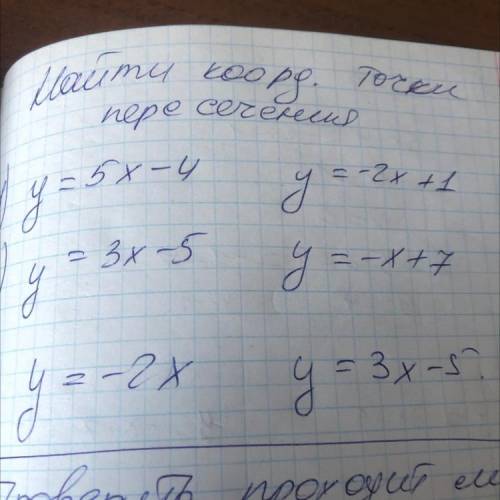 Найти коорд. точки
пересечения
) y = 5x - 4 y = -2x + 1
) y = 3x - 5 y = -x + 7
y = -2x y = 3x - 5.
проходит